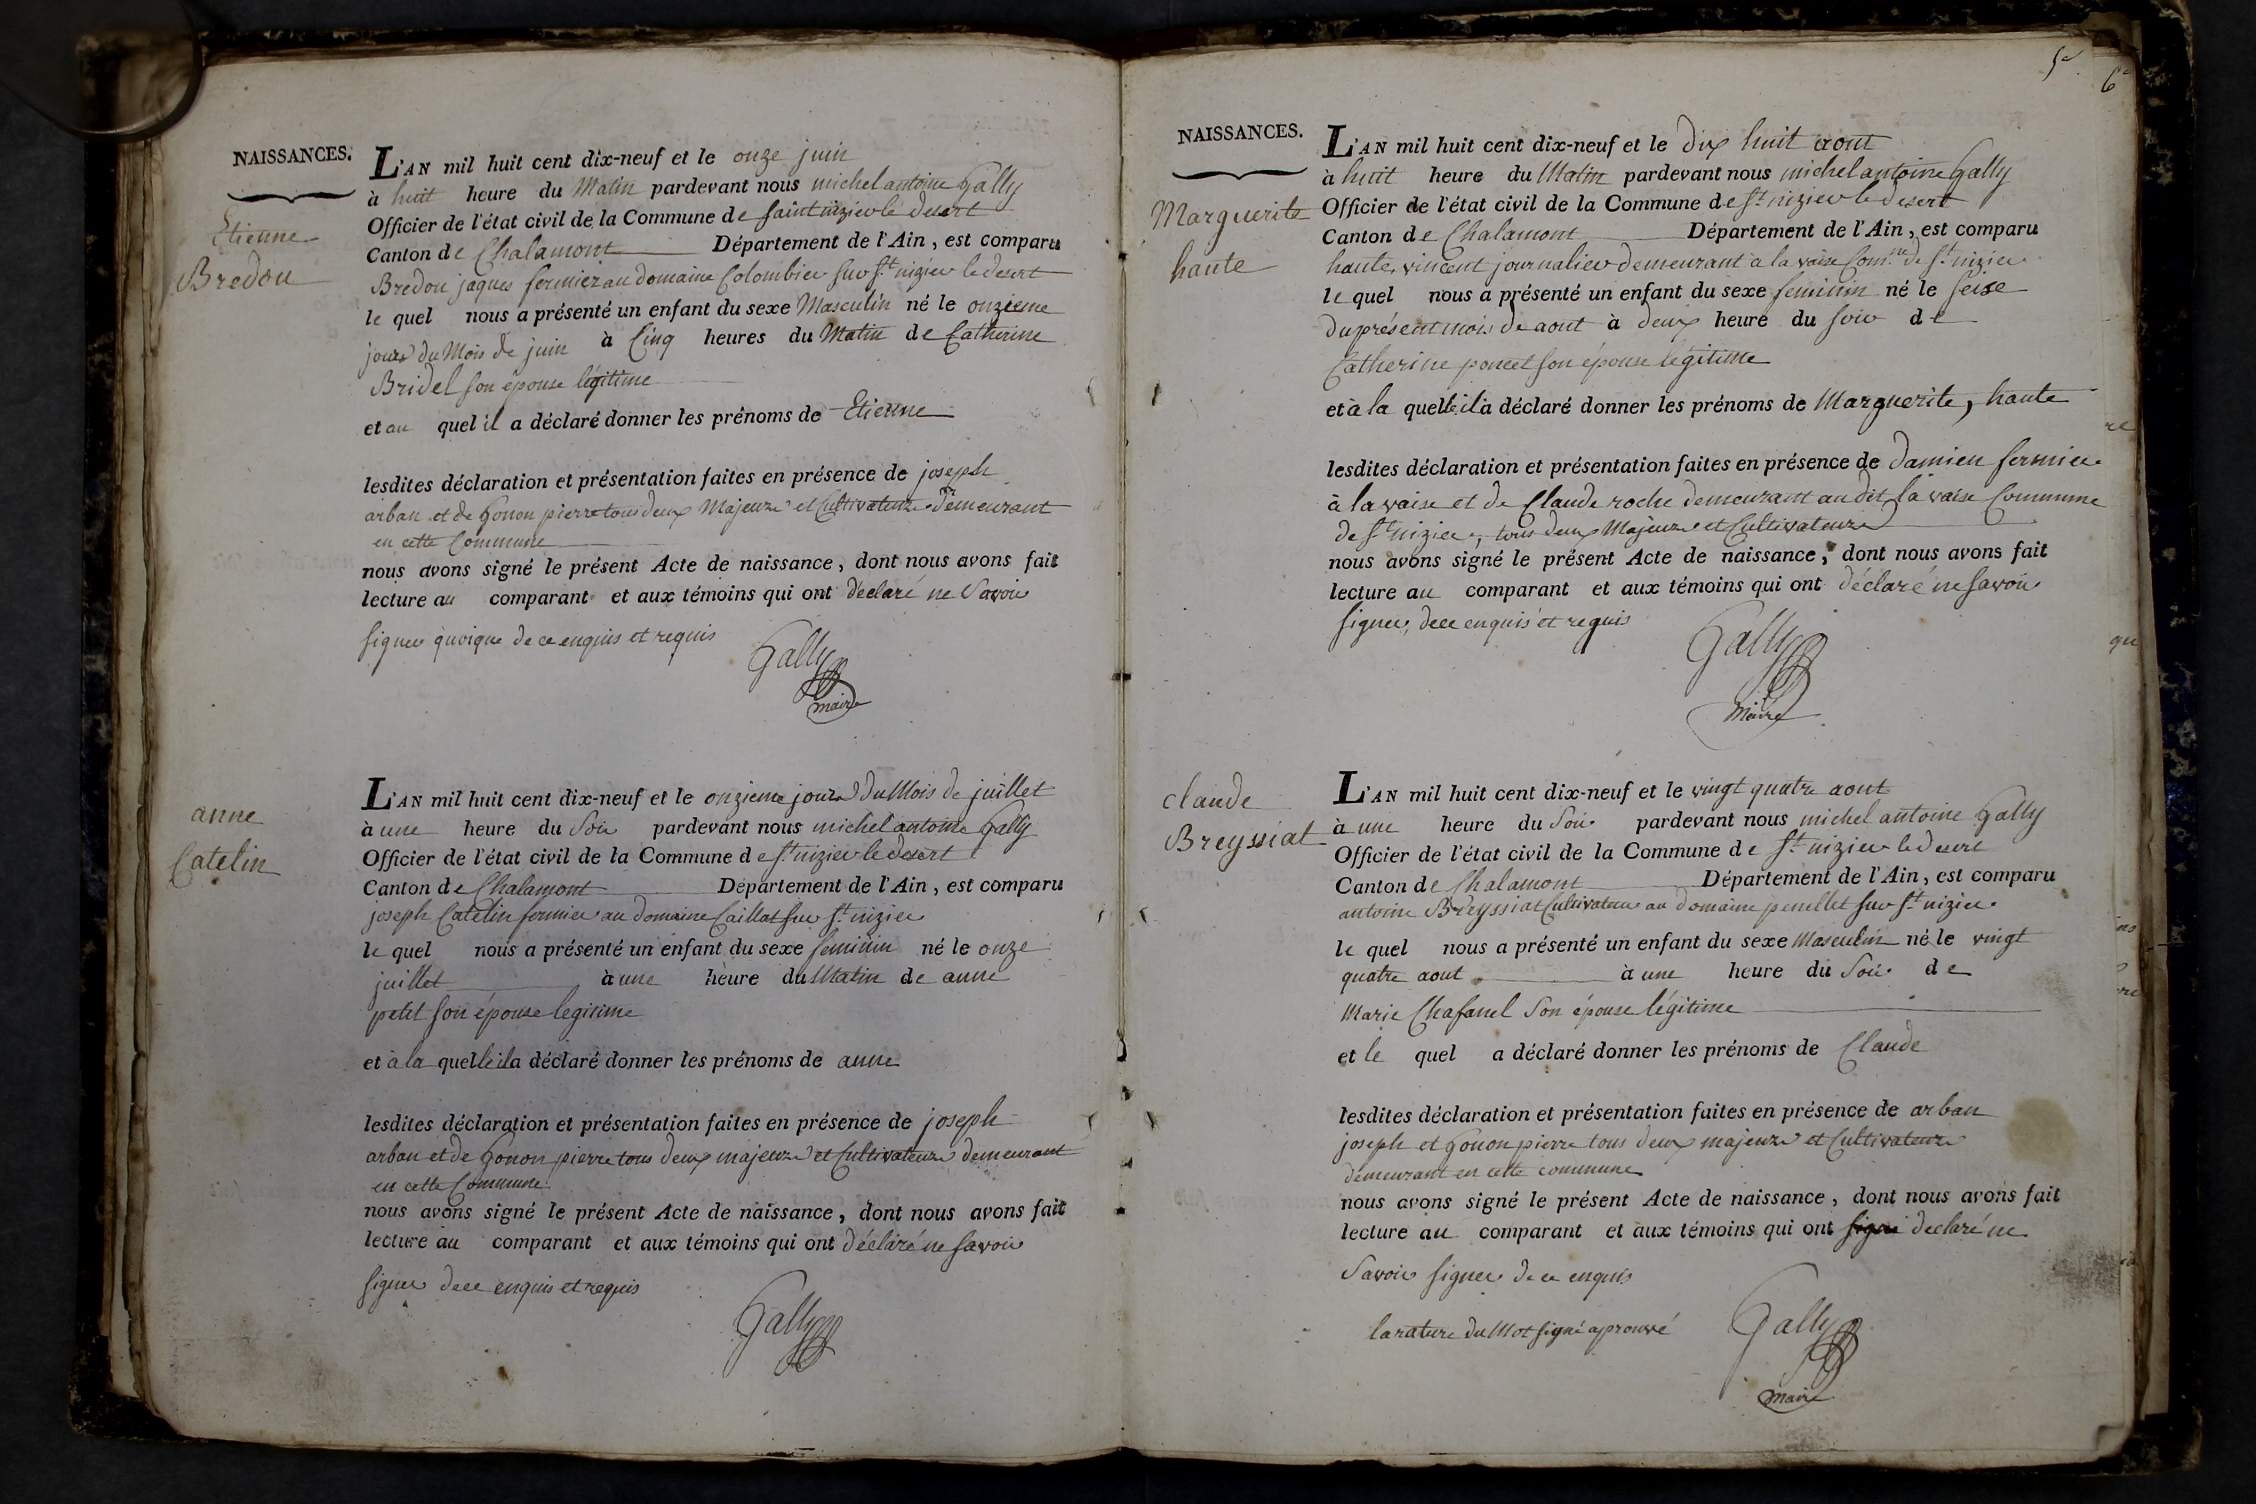 NAISSANCES.
Etienne
Bredon
L'AN mil huit cent dix-neuf et le onze juin
à huit heure du Matin pardevant nous michel antoine Gally
Officier de l'état civil de la Commune de saint nizier le desert
Canton de Chalamont Département de l'Ain, est comparu
Bredon jaques fermier au domaine Colombier sur St. nizier le desert
le quel nous a présenté un enfant du sexe Masculin né le onzieme
jour du Mois de juin à Cinq heures du Matin de Catherine
Bridel son épouse légitime
et au quel il a déclaré donner les prénoms de Etienne
lesdites déclaration et présentation faites en présence de joseph
arban et de Gonon pierre tous deux Majeurs et Cultivateurs demeurant
en cette Commune
nous avons signé le présent Acte de naissance, dont nous avons fait
lecture au comparant et aux témoins qui ont déclaré ne Savoir
signer quoique de ce enquis et requis
Gally
maire
anne
Catelin
L'AN mil huit cent dix-neuf et le onzieme jour du Mois de juillet
à une heure du Soir pardevant nous michel antoine Gally
Officier de l'état civil de la Commune de St. nizier le desert
Canton de Chalamont Département de l'Ain, est comparu
joseph Catelin fermier au domaine Caillat sur St. nizier
le quel nous a présenté un enfant du sexe feminin né le onze
juillet à une heure du Matin de anne
petit son épouse legitime
et à la quelle il a déclaré donner les prénoms de anne
lesdites déclaration et présentation faites en présence de joseph
arban et de Gonon pierre tous deux majeurs et Cultivateurs demeurant
en cette Commune
nous avons signé le présent Acte de naissance, dont nous avons fait
lecture au comparant et aux témoins qui ont déclaré ne Savoir
signer de ce enquis et requis
Gally
5e
6e
NAISSANCES.
Marguerite
haute
L'AN mil huit cent dix-neuf et le dix huit aout
à huit heure du Matin pardevant nous michel antoine Gally
Officier de l'état civil de la Commune de St. nizier le desert
Canton de Chalamont Département de l'Ain, est comparu
haute, vincent journalier demeurant a la vaise Com.ne de St. nizier
le quel nous a présenté un enfant du sexe feminin né le seise
du présent mois de aout à deux heure du soir de
Catherine poncet son épouse légitime
et à la quelle il a déclaré donner les prénoms de Marguerite, haute
lesdites déclaration et présentation faites en présence de damien fermier
à la vaise et de Claude roche demeurant au dit la vaise Commune
de St. nizier, tous deux Majeurs et Cultivateurs
nous avons signé le présent Acte de naissance, dont nous avons fait
lecture au comparant et aux témoins qui ont déclaré ne savoir
signer, de ce enquis et requis
Gally
Maire
claude
Breyssiat
L'AN mil huit cent dix-neuf et le vingt quatre aout
à une heure du Soir pardevant nous michel antoine Gally
Officier de l'état civil de la Commune de St. nizier le desert
Canton de Chalamont Département de l'Ain, est comparu
antoine Breyssiat Cultivateur au domaine penellet sur St. nizier
le quel nous a présenté un enfant du sexe Masculin né le vingt
quatre aout à une heure du Soir de
Marie Chafanel Son épouse légitime
et le quel a déclaré donner les prénoms de Claude
lesdites déclaration et présentation faites en présence de arban
joseph et Gonon pierre tous deux majeurs et Cultivateurs
demeurant en cette commune
nous avons signé le présent Acte de naissance, dont nous avons fait
lecture au comparant et aux témoins qui ont signé declaré ne
Savoir signer de ce enquis
la rature du Mot signé aprouvé
Gally
maire